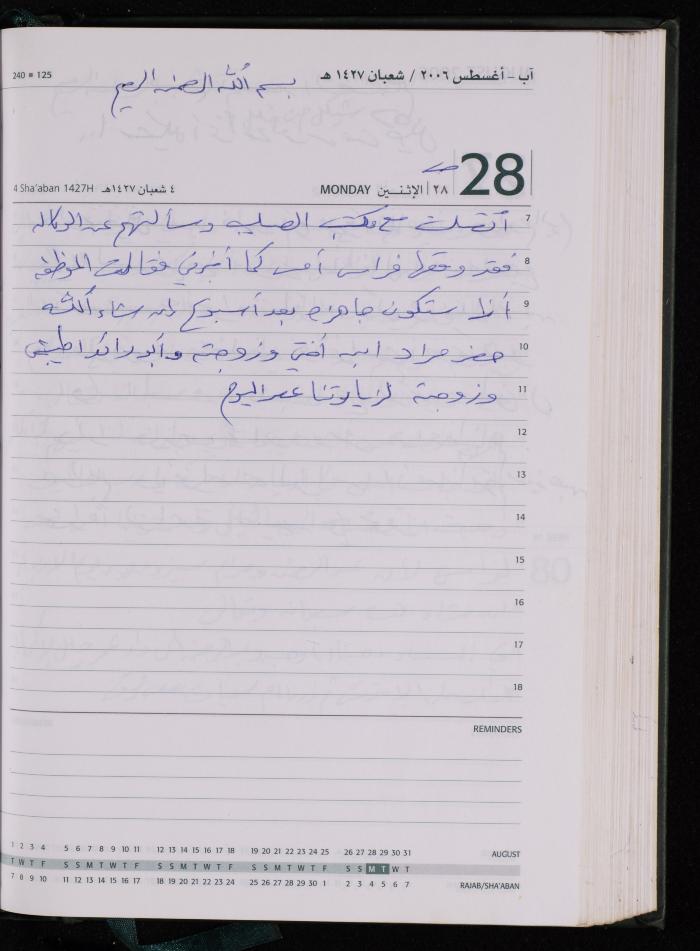 آب - أغسطس ٢٠٠٦ / شعبان ١٤٢٧ هـ
240 ■ 125
بسم الله الرحمن الرحيم
28
٢٨ | الإثنـين MONDAY
٤ شعبان ١٤٢٧هـ 4 Sha'aban 1427H
7 اتصلت مع مكتب الصليب وسألتهم عن الوكاله
8 فقد وقعها فراس أمس كما أخبرني فقالت الموظفة
9 أنها ستكون جاهزه بعد أسبوع إن شاء الله
10 حضر مراد ابن أختي وزوجته وأبو رائد
11 وزوجته لزيارتنا عصر اليوم
12
13
14
15
16
17
18
REMINDERS
1 2 3 4 5 6 7 8 9 10 11 12 13 14 15 16 17 18 19 20 21 22 23 24 25 26 27 28 29 30 31 AUGUST
T W T F S S M T W T F S S M T W T F S S M T W T F S S M T W T
7 8 9 10 11 12 13 14 15 16 17 18 19 20 21 22 23 24 25 26 27 28 29 30 1 2 3 4 5 6 7 RAJAB/SHA'ABAN